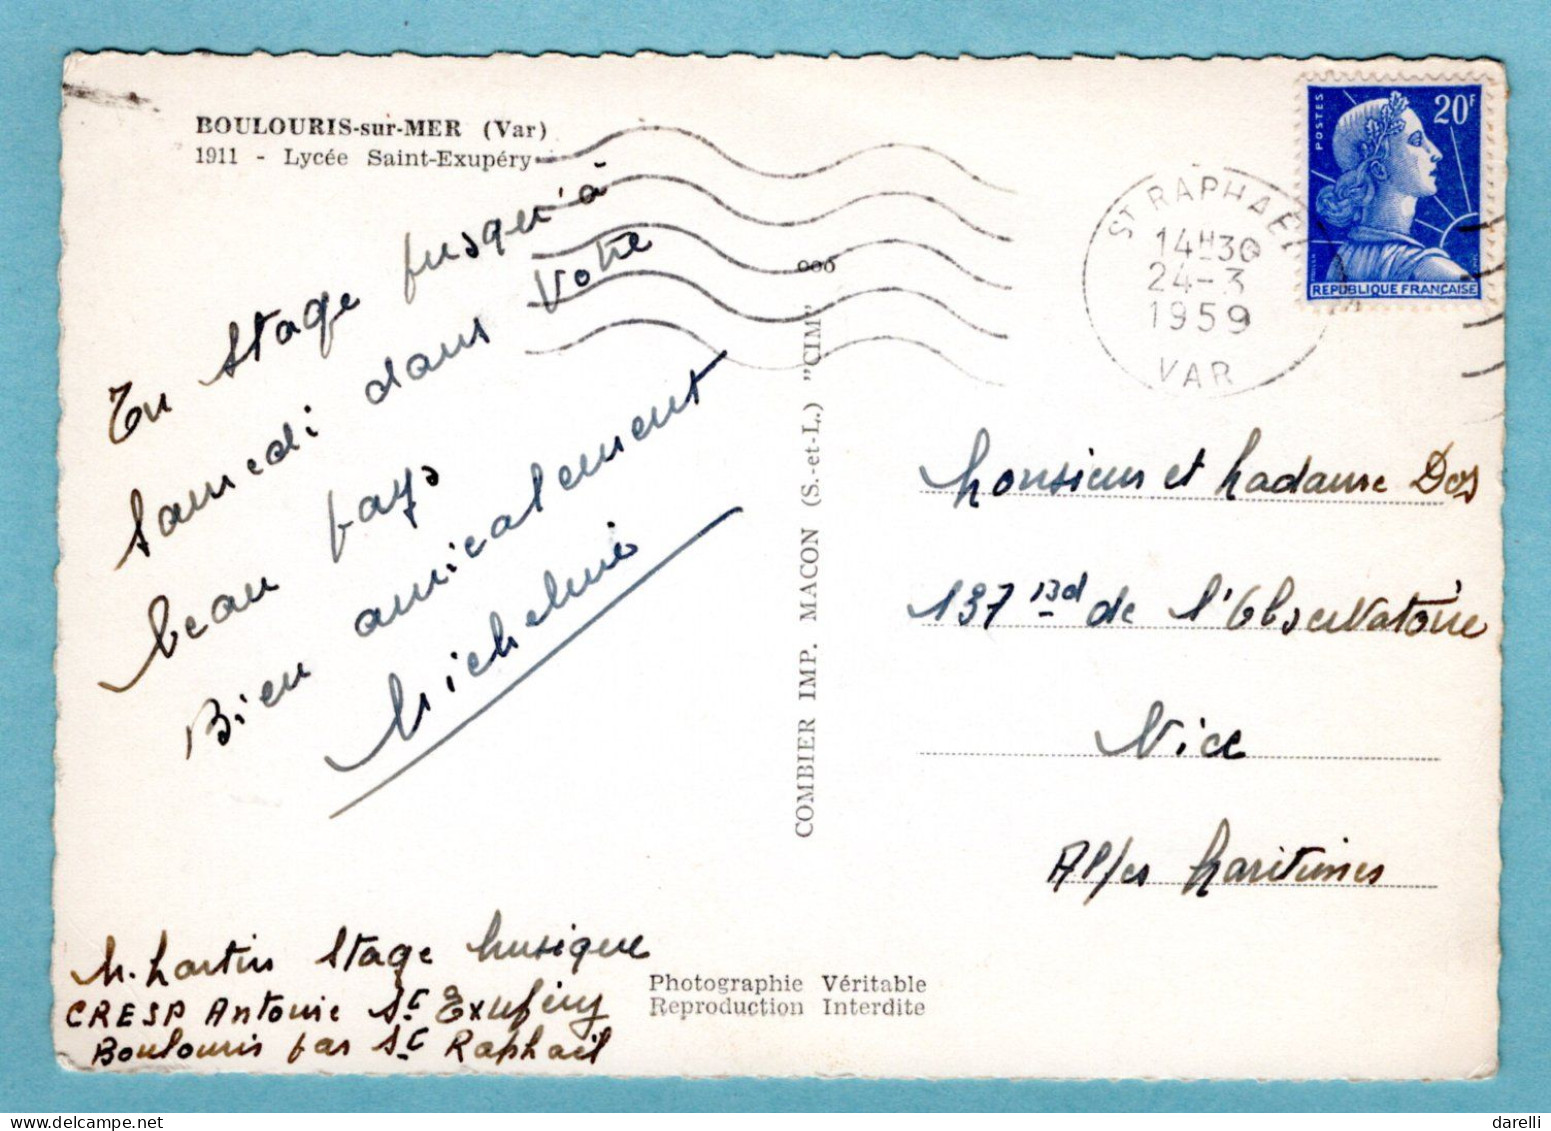 BOULOURIS-sur-MER (Var)
1911 - Lycée Saint-Exupéry
En stage jusqu'à
Samedi dans Votre
beau pays
Bien amicalement
Micheline
M. Martin Stage Musique
CRESP Antoine St Exupéry
Boulouris par St Raphaël
Photographie Véritable
Reproduction Interdite
COMBIER IMP. MACON (S.-et-L.) "CIM"
ST RAPHAEL
14H30
24-3
1959
VAR
POSTES
20F
REPUBLIQUE FRANÇAISE
Monsieur et Madame Dos
137 Bd de l'Observatoire
Nice
Alpes Maritimes
darelli